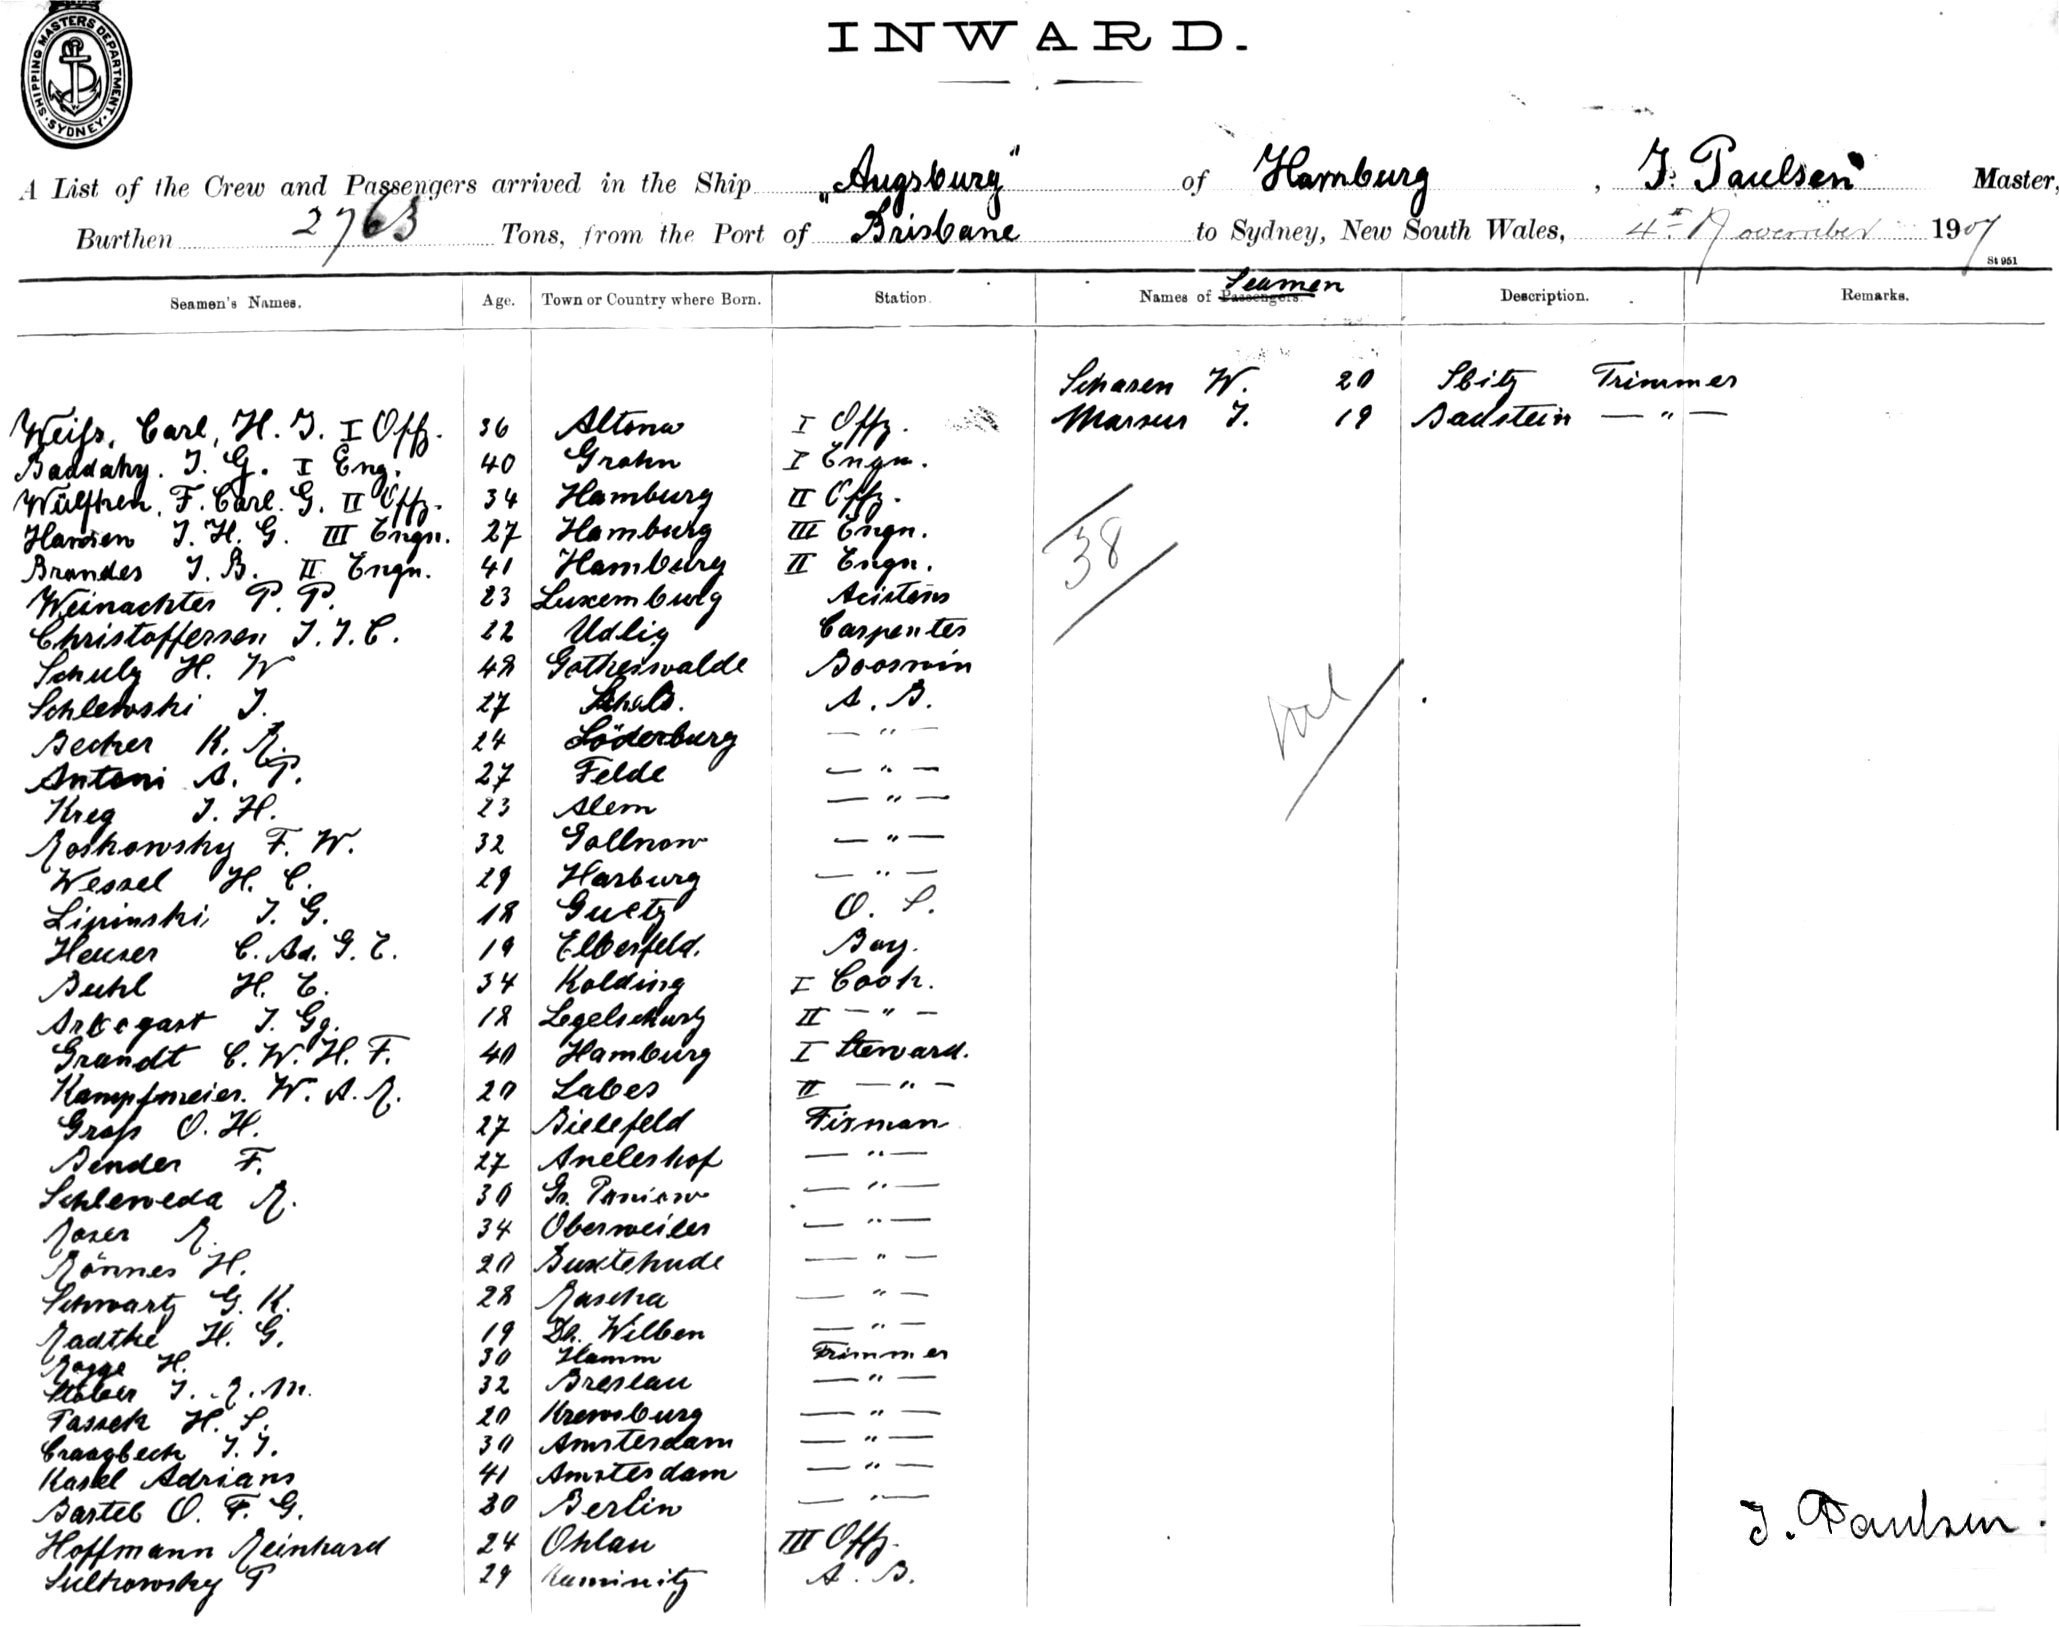 SHIPPING MASTERS DEPARTMENT. SYDNEY.
INWARD.
A List of the Crew and Passengers arrived in the Ship „Augsburg" of Hamburg, J. Paulsen Master,
Burthen 2763 Tons, from the Port of Brisbane to Sydney, New South Wales, 4th November 1907
St 951
Seamen's Names. Age. Town or Country where Born. Station. Names of Passengers. Seamen Description. Remarks.
Scharen W. 20 Sbitz Trimmer
Weiß, Carl, H. J. I Offz. 36 Altona I Offz. Marsus J. 19 Badstein — " —
Baddaky. J. G. I Eng. 40 Grohn I Engn.
Wülfken, F. Carl. G. II Offz. 34 Hamburg II Offz.
Hansen J. H. G. III Engn. 27 Hamburg III Engn.
Brandes J. B. II Engn. 41 Hamburg II Engn.
38
Weinachter P. P. 23 Luxemburg Asistens
Christoffersen J. J. C. 22 Udlig Carpenter
Schulz H. W 48 Gotheswalde Booswin
Schlewski J. 27 A. B.
Becker K. R. 24 Löderburg — " —
Antoni A. P. 27 Felde — " —
Kreg J. H. 23 Alem — " —
Roskowsky F. W. 32 Gollnow — " —
Wessel H. C. 29 Harburg — " —
Lipinski J. G. 18 Guetz O. S.
Heuser C. Ad. G. E. 19 Elberfeld. Boy.
Buhl H. E. 34 Kolding I Cook.
Arbogast J. Gg. 18 Legelshurg II — " —
Grandt C. W. H. F. 40 Hamburg I Steward.
Kampfmeier. W. A. R. 20 Labes II — " —
Groß O. H. 27 Bielefeld Firman
Bender F. 27 Aneleshof — " —
Schleweda R. 30 Gr. Paniow — " —
Roser R. 34 Oberweiler — " —
Rönnes H. 20 Buxtehude — " —
Schwartz G. K. 28 Rascha — " —
Radtke H. G. 19 Dh. Wilben — " —
Rogge H. 30 Hamm Trimmer
Stöber J. R. M. 32 Breslau — " —
Passek H. S. 20 Kremsburg — " —
Craagbeck J. J. 30 Amsterdam — " —
Kasel Adrians 41 Amsterdam — " —
Bartel O. F. G. 30 Berlin — " —
Hoffmann Reinhard 24 Ohlau III Offz.
J. Paulsen.
Sulkowsky P 29 Kaminitz A. B.